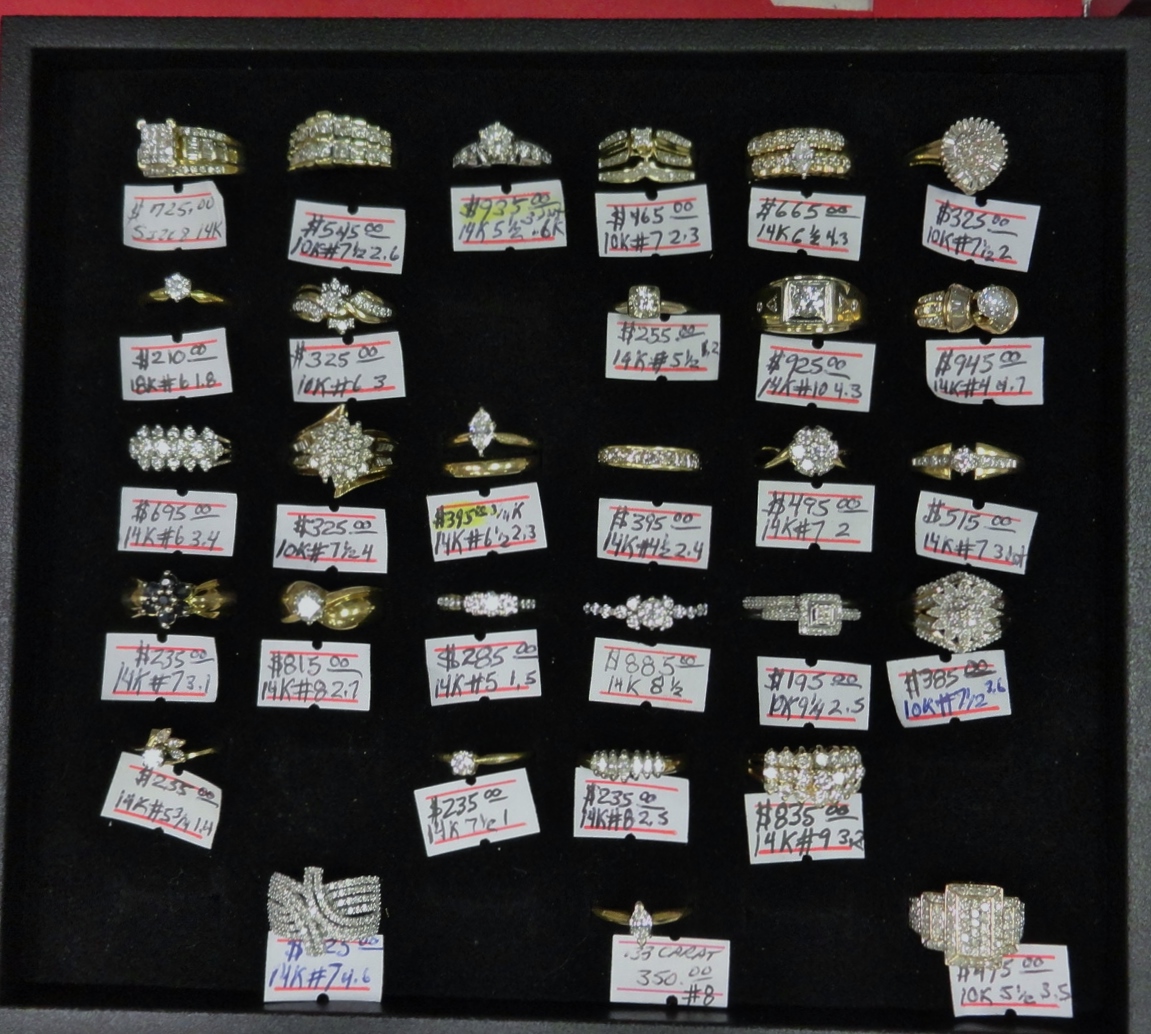 $725.00
Size 8 14K
$545.00
10K#7½ 2.6
$935.00
14K 5½
$465.00
10K#7 2.3
$665.00
14K 6½ 4.3
$325.00
10K#7½ 2
$210.00
18K#6 1.8
$325.00
10K#6 3
$255.00
14K#5½
$925.00
14K#10 4.3
$945.00
14K#4 4.7
$695.00
14K#6 3.4
$325.00
10K#7½ 4
$395.00
14K#6½ 2.3
$395.00
14K#4½ 2.4
$495.00
14K#7 2
$515.00
14K#7
$235.00
14K#7 3.1
$815.00
14K#8 2.7
$285.00
14K#5 1.5
$885.00
14K 8½
$195.00
10K 9¼ 2.5
$385.00
10K#7½ 3.6
$235.00
14K#5¾ 1.4
$235.00
14K 7½ 1
$235.00
14K#8 2.5
$835.00
14K#9 3.2
14K#7 4.6
.33 CARAT
350.00
#8
$475.00
10K 5½ 3.5